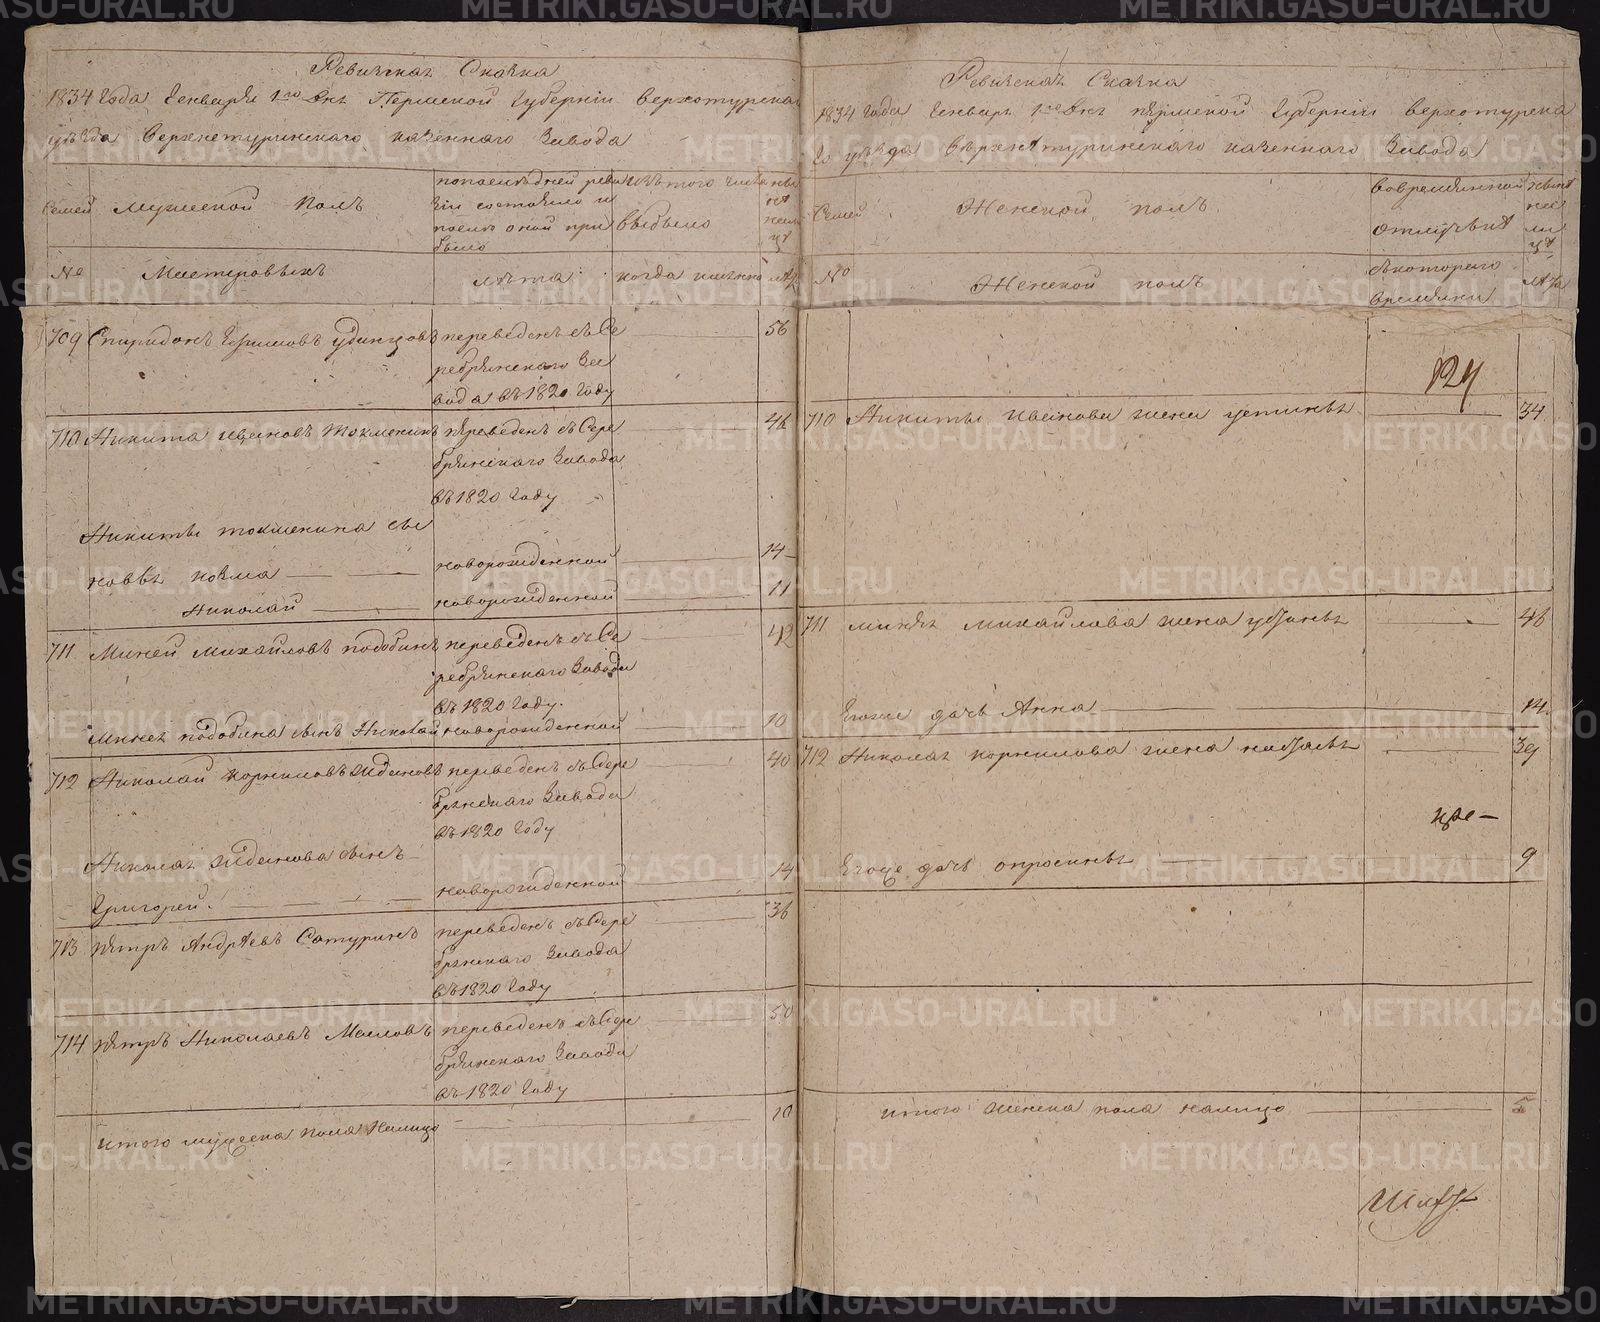 Ревизская Сказка
1834 Года Генваря 1го дня Пермской Губернiи Верхотурскаго
уѣзда Верхнетуринскаго казеннаго Завода
Семей
Мужеской полъ
по последней реви
зiи состояло и
после оной при
было
изъ того числа
выбыло
ны
не
на ли
цѣ
№
Мастеровыхъ
лѣта
когда именно
лѣта
709 Спиридонъ Ефимовъ Удинцовъ переведенъ съ Се 56
ребрянскаго За
вода въ 1820 Году
710 Никита Ивановъ Токменинъ переведенъ съ Сере 46
брянскаго Завода
въ 1820 Году
Никиты Токменина сы
новья Козма — — новорожденной 14
Николай — новорожденной 11
711 Миней Михайловъ Пододинъ переведенъ съ Се 42
ребрянскаго Завода
въ 1820 Году.
Минея Пододина сынъ Николай новорожденной 10
712 Николай Корниловъ переведенъ съ Сере 40
брянскаго Завода
въ 1820 Году
Николая сынъ
Григорей. новорожденной 14
713 Петръ Андреевъ Сатуринъ переведенъ съ Сере 36
брянскаго Завода
въ 1820 Году
714 Петръ Николаевъ Масловъ переведенъ съ Сере 50
брянскаго Завода
въ 1820 Году
итого мужеска пола налицо 10
Ревизская Сказка
1834 Года Генваря 1го дня Пермской Губернiи Верхотурска
го уѣзда Верхнетуринскаго казеннаго Завода
Семей
Женской полъ
во временной
отлучке
ныне
на
ли
цѣ
№
Женской полъ
съ котораго
времяни
лѣта
124
710 Никиты Иванова жена Устинья 34
711 Минея Михайлова жена Ульяна 46
Егоже дочь Анна 14
712 Николая Корнилова жена Наталья 39
Егоже дочь Опросинья 9
итого женска пола налицо 5
METRIKI.GASO-URAL.RU